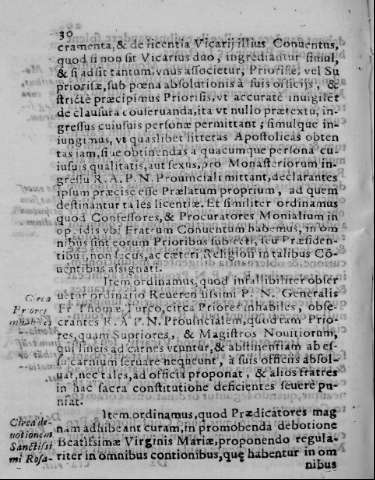 30
cramenta, & de licentia Vicarij illius Conuentus,
quod si non sit Vicarius duo, ingrediantur simul,
& si adsit tantum, vnus associetur, Priorisse, vel Su
priorisæ, sub pœna absolutionis à suis officijs, &
strictè præcipimus Priorissis, vt accuratè inuigilet
de clausura conseruanda, ita vt nullo prætextu, in-
gressus cuiusuis personæ permittant; simulque in-
iungimus, vt quaslibet litteras Apostolicas obten
tas iam, siue obtinendas à quacumque persona cu-
iusuis qualitatis, aut sexus, pro Monasteriorum in-
gressu R. A. P. N. Prouinciali mittant, declarantes
ipsum præcisè esse Prælatum proprium, ad quem
destinantur tales licentiæ. Et similiter ordinamus
quod Confessores, & Procuratores Monialium in
oppidis vbi Fratrum Conuentum habemus, in om
nibus sint eorum Prioribus subiecti, seu Præsiden-
tibus, non secus, ac cæteri Religiosi in talibus Cō-
uentibus assignati.
Item ordinamus, quod infallibiliter obser
uetur ordinatio Reuerendissimi P. N. Generalis
Fr Thomæ Turco, circa Priores inhabiles, obse-
crantes R. A P. N. Prouincialem, quod tam Prio-
res, quam Suppriores, & Magistros Nouitiorum,
qui linei ad carnes vtuntur, & abstinentiam ab es-
su carnium seruare nequeunt, à suis officijs absol-
uat, nec tales, ad officia proponat, & alios fratres
in hac sacra constitutione deficientes seuerè pu-
niat.
Circa
Priores
inhabiles
Item ordinamus, quod Prædicatores mag
nam adhibeant curam, in promobenda debotione
Beatissimæ Virginis Mariæ, proponendo regula-
riter in omnibus contionibus, quę habentur in om
nibus
Circa de-
uotionem
Sanctissi
mi Rosa-